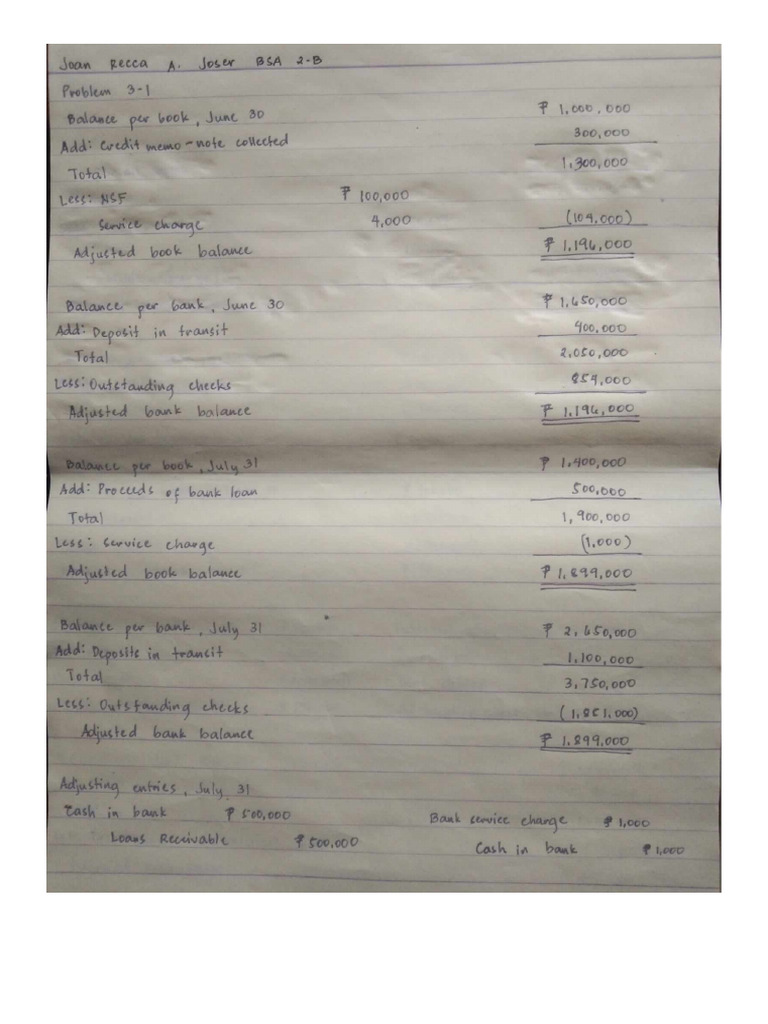 Joan Recca A. Joser BSA 2-B
Problem 3-1
Balance per book, June 30 ₱ 1,000,000
Add: Credit memo - note collected 300,000
Total 1,300,000
Less: NSF ₱ 100,000
Service charge 4,000 (104,000)
Adjusted book balance ₱ 1,196,000
Balance per bank, June 30 ₱ 1,650,000
Add: Deposit in transit 400,000
Total 2,050,000
Less: Outstanding checks 854,000
Adjusted bank balance ₱ 1,196,000
Balance per book, July 31 ₱ 1,400,000
Add: Proceeds of bank loan 500,000
Total 1,900,000
Less: Service charge (1,000)
Adjusted book balance ₱ 1,899,000
Balance per bank, July 31 ₱ 2,650,000
Add: Deposits in transit 1,100,000
Total 3,750,000
Less: Outstanding checks (1,851,000)
Adjusted bank balance ₱ 1,899,000
Adjusting entries, July 31
Cash in bank ₱ 500,000 Bank service charge ₱ 1,000
Loans Receivable ₱ 500,000 Cash in bank ₱ 1,000